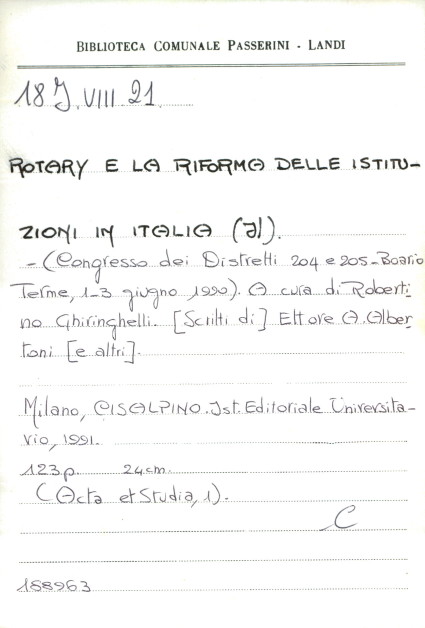 BIBLIOTECA COMUNALE PASSERINI - LANDI
18 J. VIII 21
ROTARY E LA RIFORMA DELLE ISTITU-
ZIONI IN ITALIA (Il).
-(Congresso dei Distretti 204 e 205-Boario
Terme, 1-3 giugno 1990). A cura di Roberti
no Ghiringhelli. [Scritti di] Ettore A. Alber
toni [e altri].
Milano, CISALPINO. Ist. Editoriale Universita-
rio, 1991.
123 p. 24 cm.
(Acta et Studia, 1).
C
188963